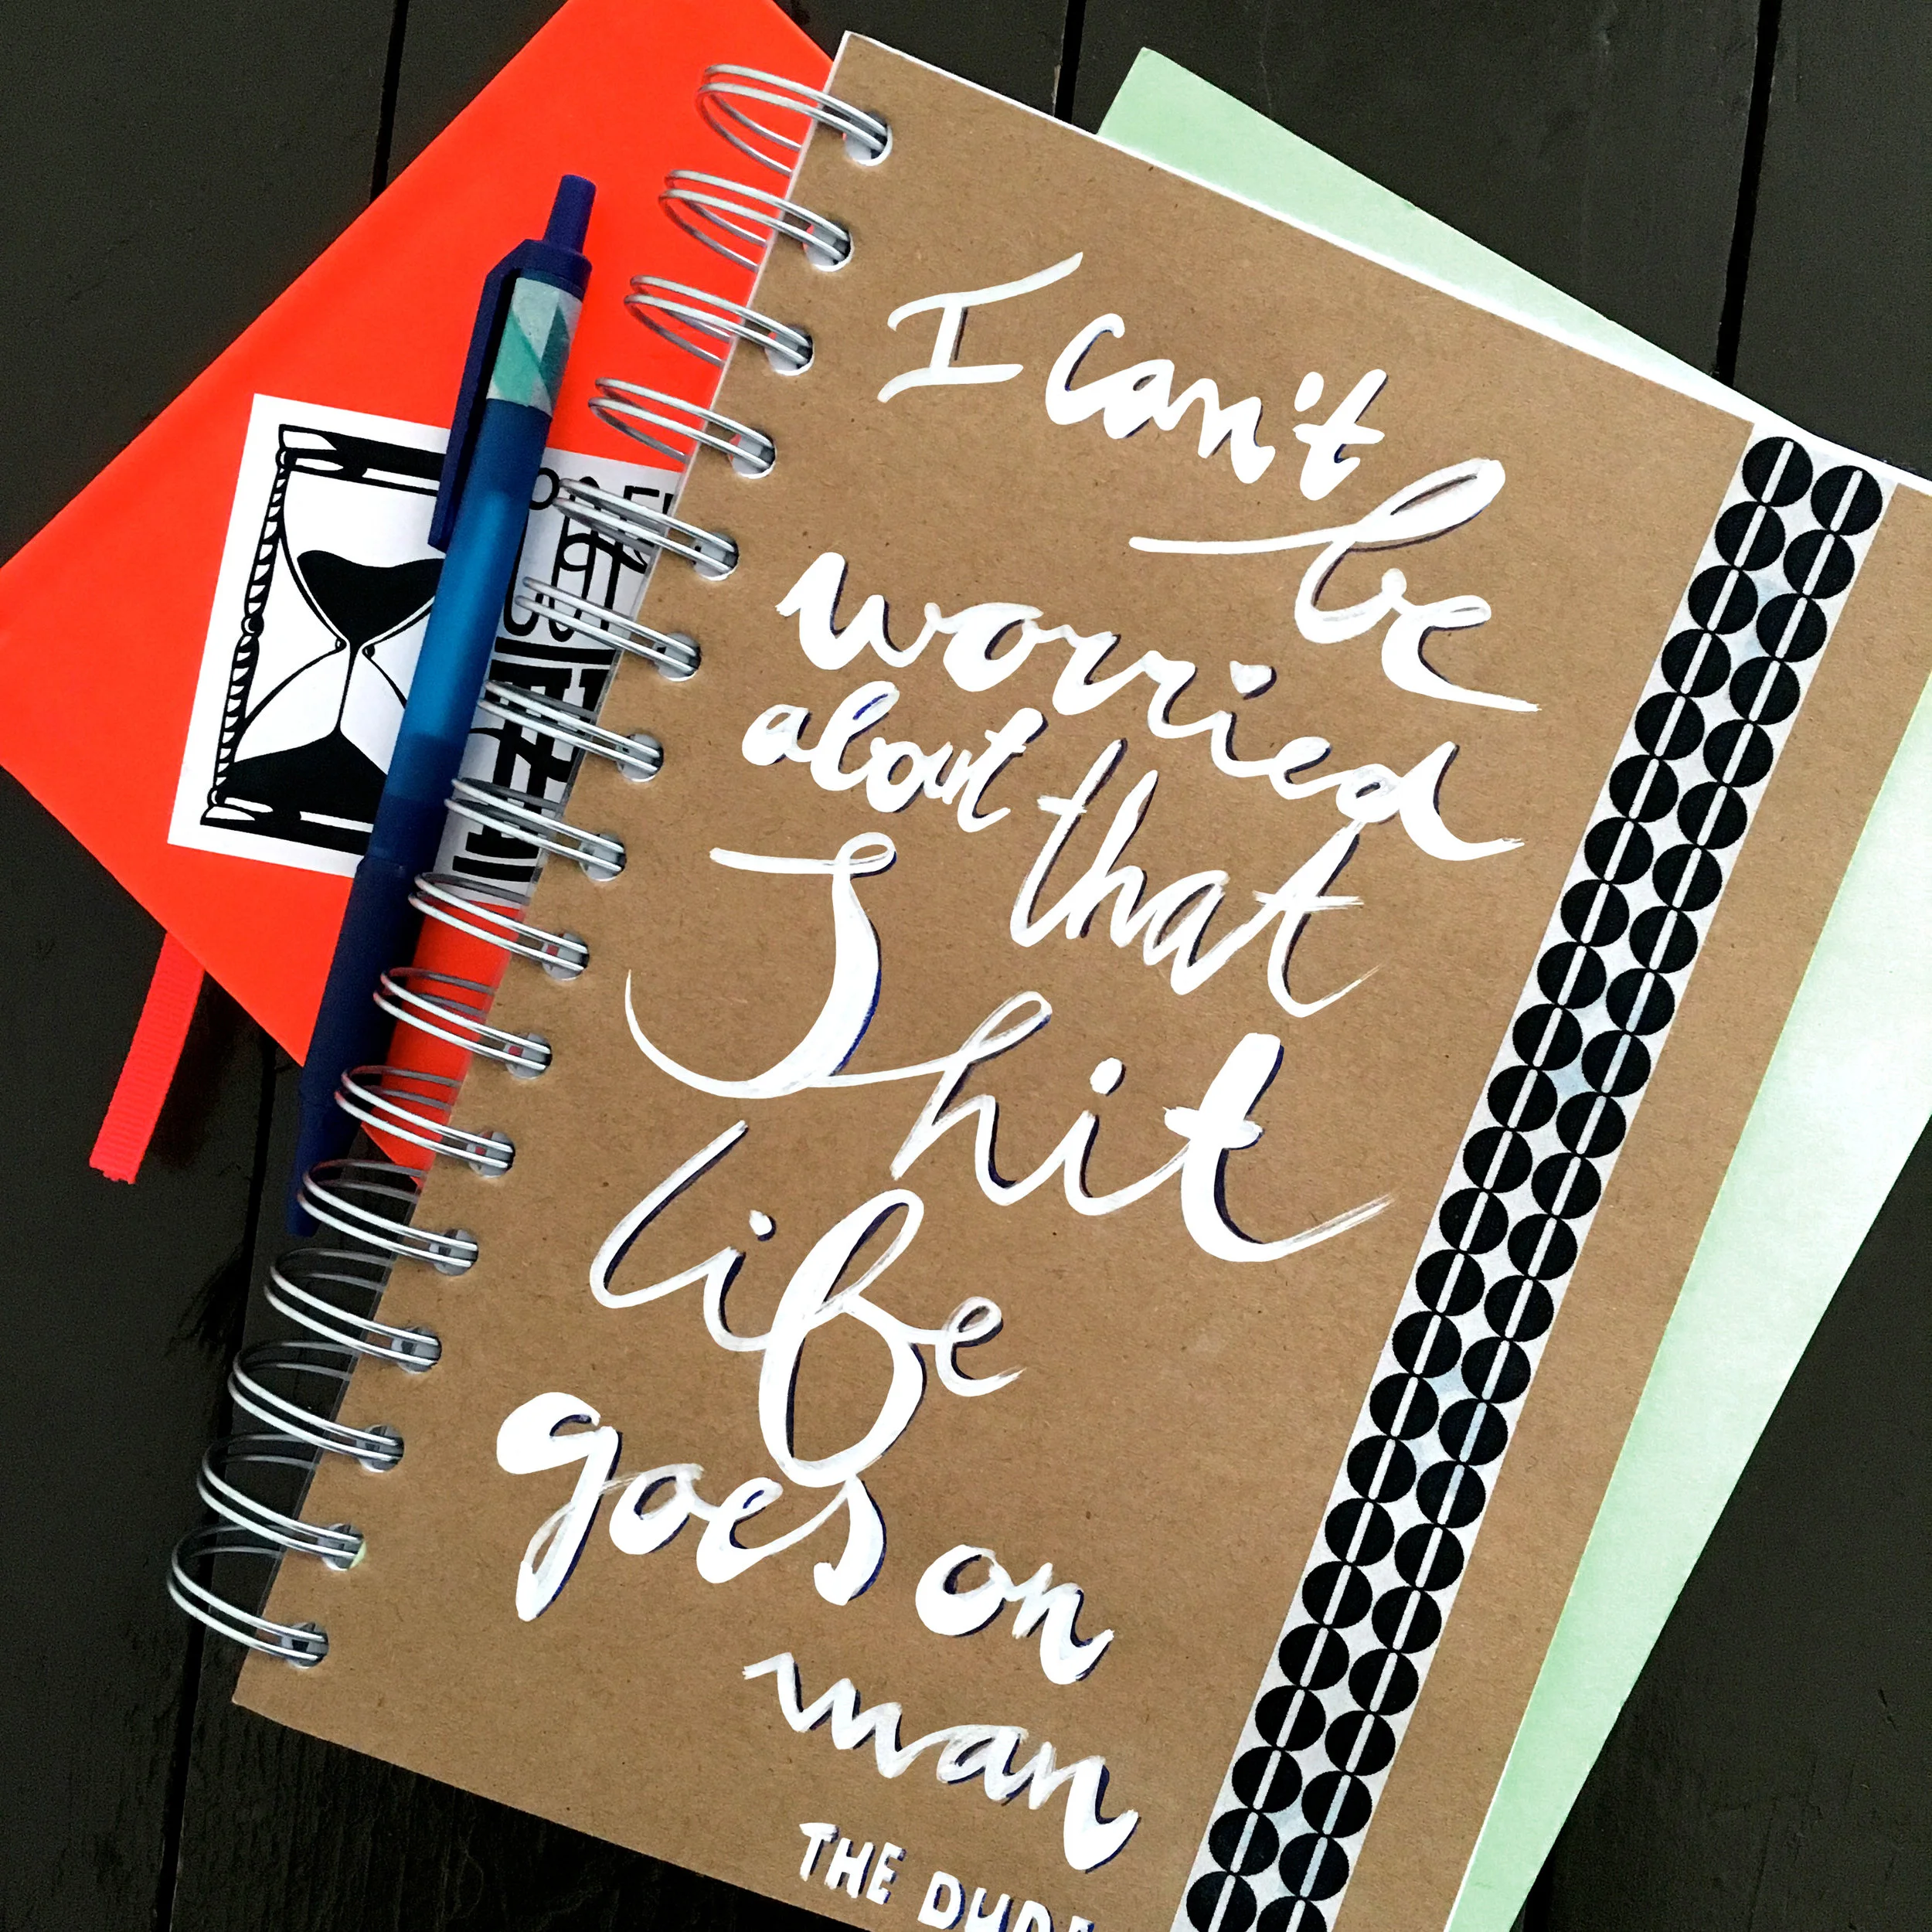 I can't
be
worried
about that
Shit
life
goes on
man
THE DUDE